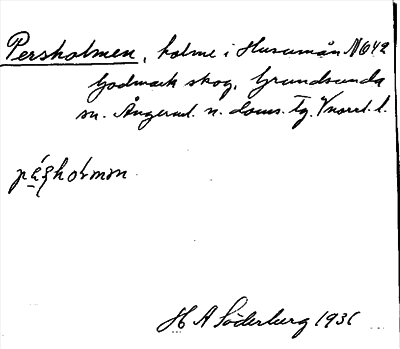 Persholmen, holme i Husumån NO 42
Godmark skog, Grundsunda
sn. Ångerml. n. doms. tg. Vnorrl. l.
pæ̀ṣholmən
H A Söderburg 1931